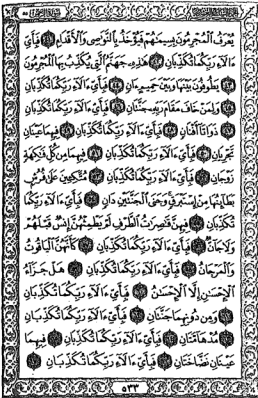 يُعْرَفُ ٱلْمُجْرِمُونَ بِسِيمَٰهُمْ فَيُؤْخَذُ بِٱلنَّوَٰصِى وَٱلْأَقْدَامِ ٤١ فَبِأَىِّ
ءَالَآءِ رَبِّكُمَا تُكَذِّبَانِ ٤٢ هَٰذِهِۦ جَهَنَّمُ ٱلَّتِى يُكَذِّبُ بِهَا ٱلْمُجْرِمُونَ
٤٣ يَطُوفُونَ بَيْنَهَا وَبَيْنَ حَمِيمٍ ءَانٍ ٤٤ فَبِأَىِّ ءَالَآءِ رَبِّكُمَا تُكَذِّبَانِ
٤٥ وَلِمَنْ خَافَ مَقَامَ رَبِّهِۦ جَنَّتَانِ ٤٦ فَبِأَىِّ ءَالَآءِ رَبِّكُمَا تُكَذِّبَانِ
٤٧ ذَوَاتَآ أَفْنَانٍ ٤٨ فَبِأَىِّ ءَالَآءِ رَبِّكُمَا تُكَذِّبَانِ ٤٩ فِيهِمَا عَيْنَانِ
تَجْرِيَانِ ٥٠ فَبِأَىِّ ءَالَآءِ رَبِّكُمَا تُكَذِّبَانِ ٥١ فِيهِمَا مِن كُلِّ فَٰكِهَةٍ
زَوْجَانِ ٥٢ فَبِأَىِّ ءَالَآءِ رَبِّكُمَا تُكَذِّبَانِ ٥٣ مُتَّكِـِٔينَ عَلَىٰ فُرُشٍۭ
بَطَآئِنُهَا مِنْ إِسْتَبْرَقٍ وَجَنَى ٱلْجَنَّتَيْنِ دَانٍ ٥٤ فَبِأَىِّ ءَالَآءِ رَبِّكُمَا
تُكَذِّبَانِ ٥٥ فِيهِنَّ قَٰصِرَٰتُ ٱلطَّرْفِ لَمْ يَطْمِثْهُنَّ إِنسٌ قَبْلَهُمْ
وَلَا جَآنٌّ ٥٦ فَبِأَىِّ ءَالَآءِ رَبِّكُمَا تُكَذِّبَانِ ٥٧ كَأَنَّهُنَّ ٱلْيَاقُوتُ
وَٱلْمَرْجَانُ ٥٨ فَبِأَىِّ ءَالَآءِ رَبِّكُمَا تُكَذِّبَانِ ٥٩ هَلْ جَزَآءُ
ٱلْإِحْسَٰنِ إِلَّا ٱلْإِحْسَٰنُ ٦٠ فَبِأَىِّ ءَالَآءِ رَبِّكُمَا تُكَذِّبَانِ
٦١ وَمِن دُونِهِمَا جَنَّتَانِ ٦٢ فَبِأَىِّ ءَالَآءِ رَبِّكُمَا تُكَذِّبَانِ
٦٣ مُدْهَآمَّتَانِ ٦٤ فَبِأَىِّ ءَالَآءِ رَبِّكُمَا تُكَذِّبَانِ ٦٥ فِيهِمَا
عَيْنَانِ نَضَّاخَتَانِ ٦٦ فَبِأَىِّ ءَالَآءِ رَبِّكُمَا تُكَذِّبَانِ ٦٧
٥٣٣